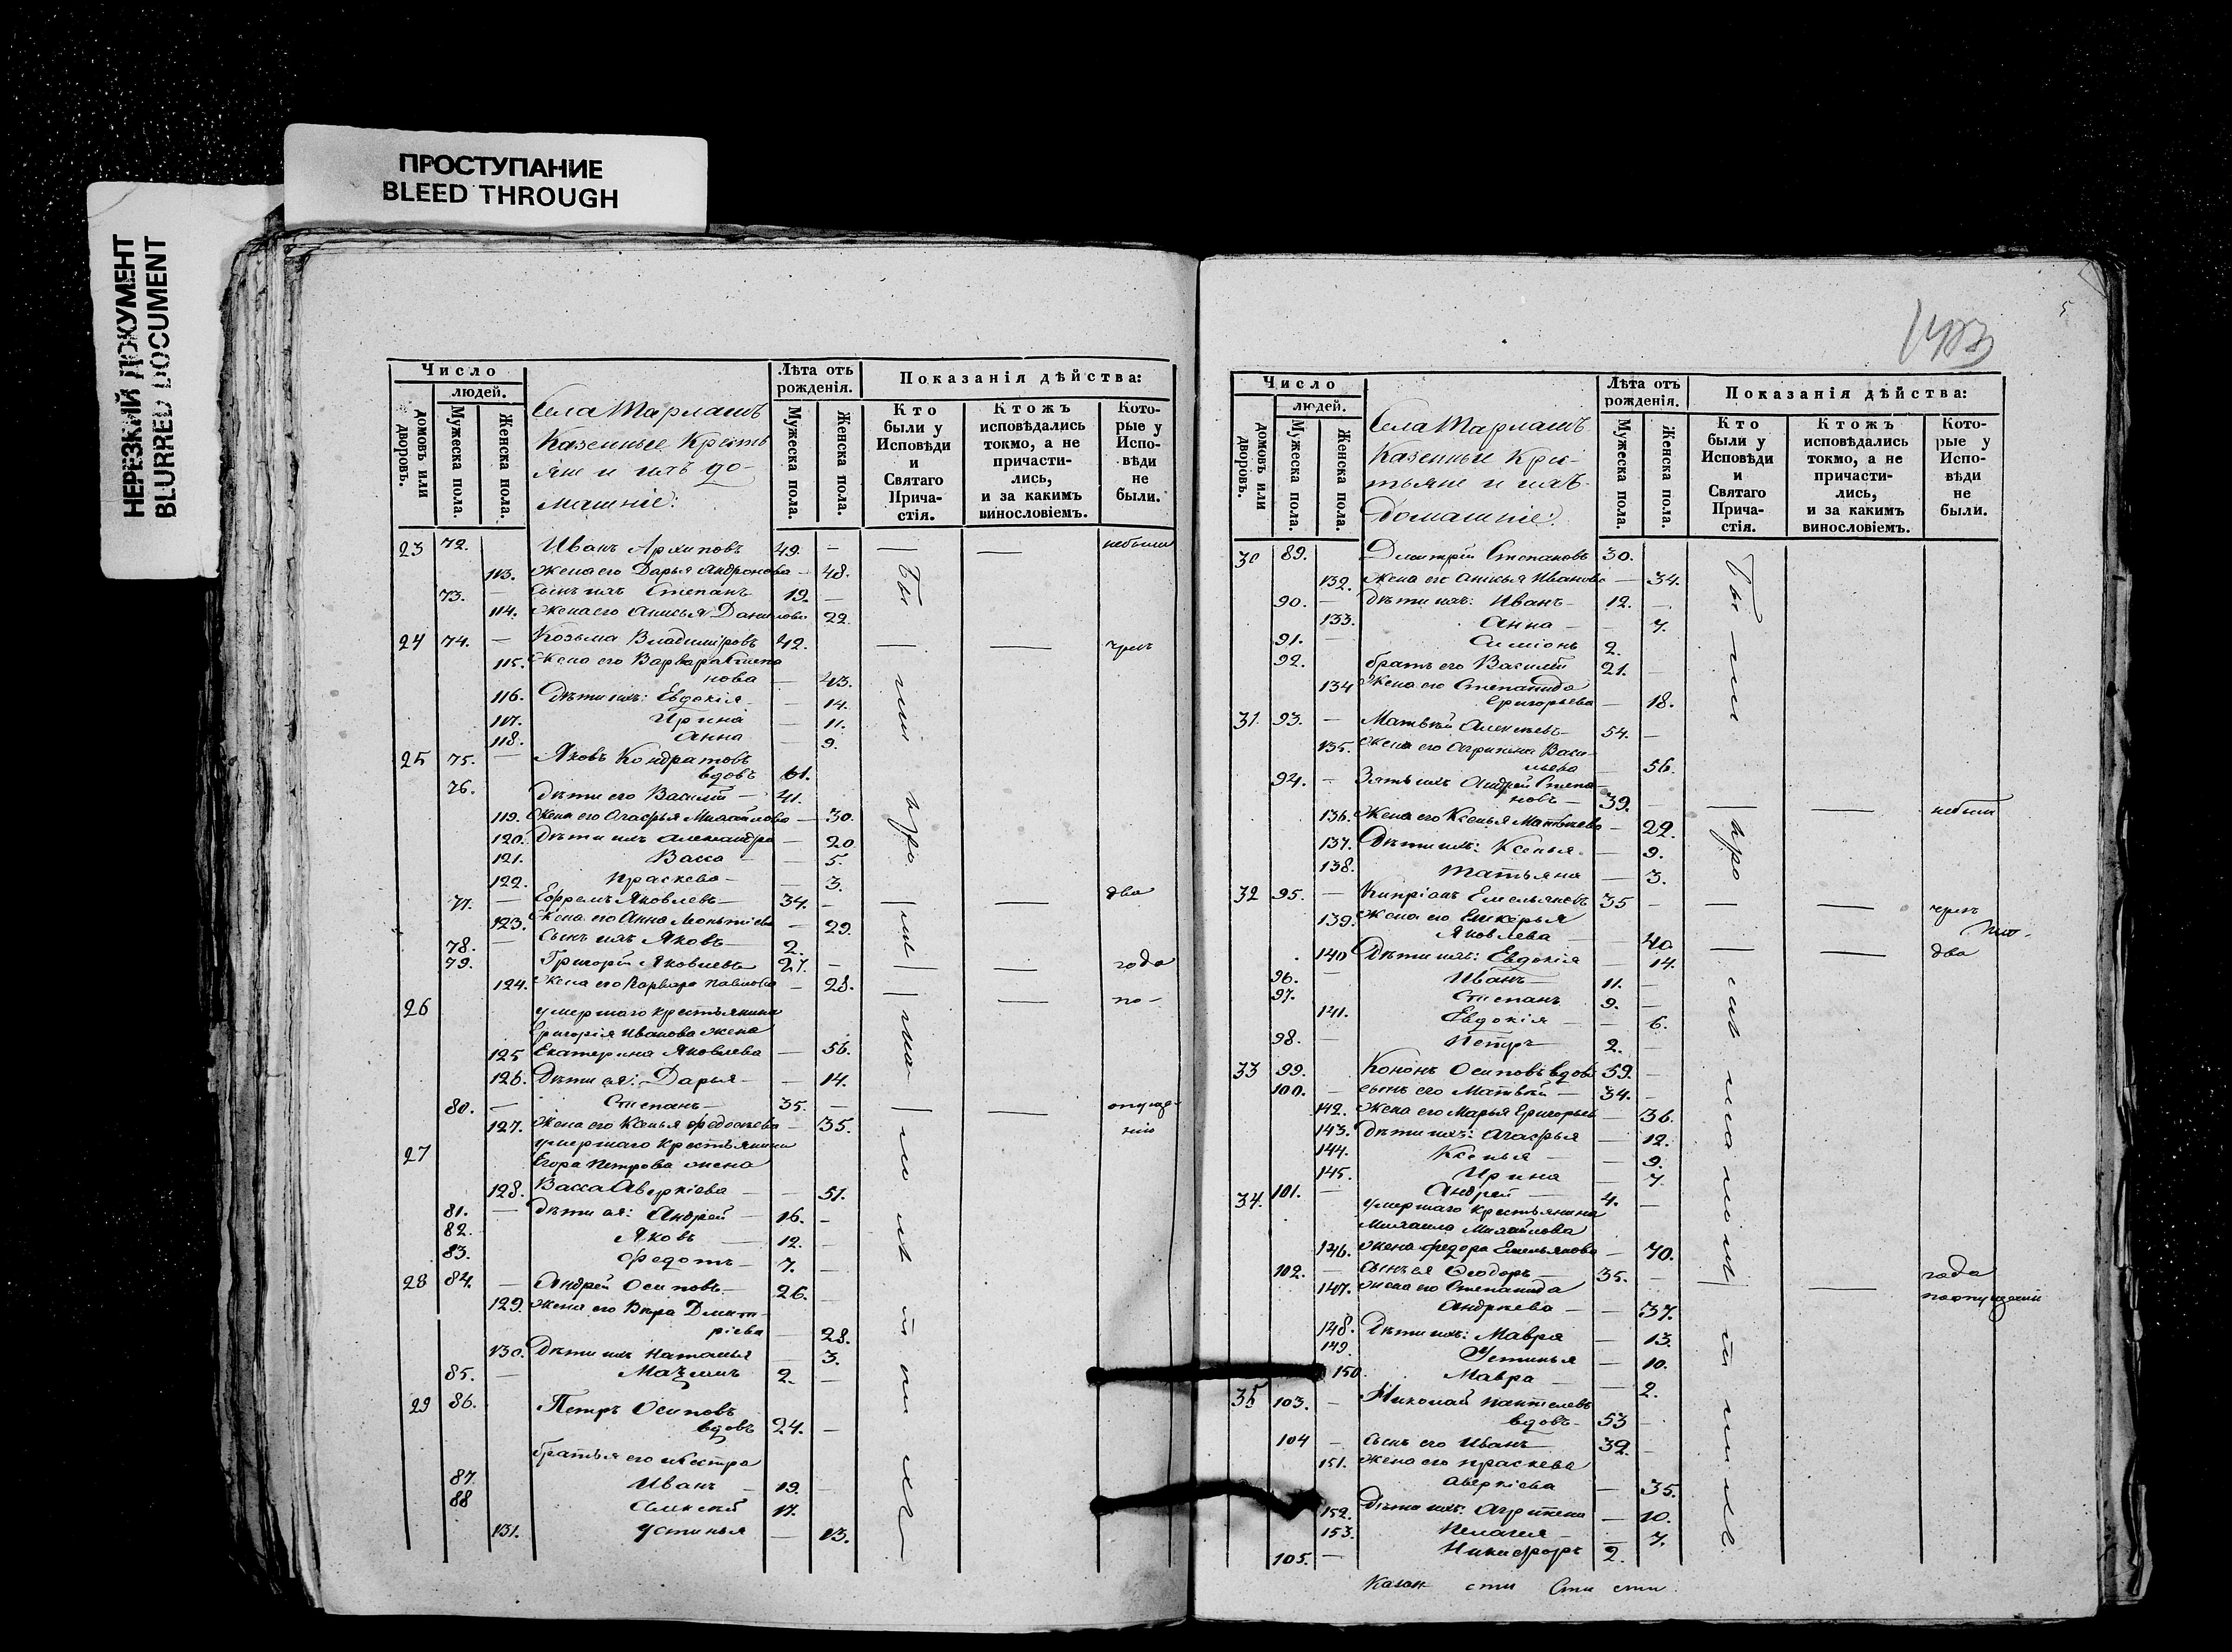 ПРОСТУПАНИЕ
BLEED THROUGH
НЕРЕЗКИЙ ДОКУМЕНТ
BLURRED DOCUMENT
Число
людей.
домовъ или дворовъ.
Мужеска пола.
Женска пола.
Села Тарлашъ
Казенные Кресть
яне и ихъ до-
машніе:
Лѣта отъ рожденія.
Мужеска пола.
Женска пола.
Показанія дѣйства:
Кто были у Исповѣди и Святаго Прича- стія.
Ктожъ исповѣдались токмо, а не причасти- лись, и за какимъ винословіемъ.
Кото- рые у Испо- вѣди не были.
23 72. Иванъ Архиповъ 49. — — — небыли
113. Жена его Дарья Андронова — 48.
73. — Сынъ ихъ Степанъ 19. —
114. Жена его Анисья Данилова 22.
24 74. — Козьма Владиміровъ 42. — — чрезъ
115. Жена его Варвара
нова — 43.
116. Дѣти ихъ: Евдокія — 14.
117. Ирина — 11.
118. Анна — 9.
25 75. — Яковъ Кондратовъ
вдовъ 61.
76. Дѣти его Василій — 41.
119. Жена его Агафья Михайлова — 30.
120. Дѣти ихъ Александра — 20
121. Васса — — 5.
122. Праскева — — 3.
77. — Ефремъ Яковлевъ — 34. — — — два
123. Жена его Анна Леонтіева — 29.
78. — Сынъ ихъ Яковъ — 2.
79. Григорій Яковлевъ 27. — — — года
124. Жена его Варвара Павлова — 28. — — по-
26 умершаго крестьянина
Григорія Иванова жена
125 Екатерина Яковлева — 56.
126. Дѣти ея: Дарья — — 14.
80. — Степанъ — 35. — — — опуще-
127. Жена его Ксенья Ѳедосѣева — 35. нію
27 умершаго крестьянина
Егора Петрова жена
128. Васса Аверкіева — — 51.
81. — Дѣти ея: Андрей — 16. —
82. Яковъ — 12. —
83. Ѳедотъ — 7. —
28 84. — Андрей Осиповъ — 26. —
129. Жена его Вѣра Дмит-
ріева — 28.
130. Дѣти ихъ Наталья — 3.
85. — Максимъ 2. —
29 86. Петръ Осиповъ
вдовъ 24. —
братья его и сестра
87. Иванъ — 19. —
88 Алексѣй 17.
131. Устинья — 13.
5
Число
людей.
домовъ или дворовъ.
Мужеска пола.
Женска пола.
Села Тарлашъ
Казенные Кре-
стьяне и ихъ
Домашніе:
Лѣта отъ рожденія.
Мужеска пола.
Женска пола.
Показанія дѣйства:
Кто были у Исповѣди и Святаго Прича- стія.
Ктожъ исповѣдались токмо, а не причасти- лись, и за какимъ винословіемъ.
Кото- рые у Испо- вѣди не были.
30 89. Дмитрій Степановъ 30.
132. Жена его Анисья Иванова — 34.
90. — Дѣти ихъ: Иванъ — 12. —
133. Анна — — 7.
91. — Симіонъ 2.
92. братъ его Василій 21. —
134 Жена его Степанида
Григорьева — 18.
31. 93. — Матвѣй Алексѣевъ — 54. —
135. Жена его Агрипена Васи-
льева — 56.
94. — Зять ихъ Андрей Степа-
новъ — 39. — — — небыли
136. Жена его Ксенья Матвѣева — 22.
137. Дѣти ихъ: Ксенья — — 9.
138. Татьяна — 3.
32 95. — Кипріанъ Емельяновъ 35 — — — чрезъ
139. Жена его Гликерья
Яковлева — 40. — —
140 Дѣти ихъ: Евдокія — 14. два
96. — Иванъ — 11. —
97. Степанъ 9. —
141. Евдокія — — 6.
98. — Петръ — 2. —
33 99. Кононъ Осиповъ вдовъ 59. —
100. — сынъ его Матвѣй — 34. —
142. Жена его Марья Григорьев — 36.
143. Дѣти ихъ: Агафья — 12.
144. Ксенья — — 9.
145. Ирина — 7.
101. — Андрей — 4. —
34. умершаго крестьянина
Михаила Михайлова
146. жена Ѳедора Емельянова — 70.
102. — Сынъ ея Ѳеодоръ — 35. — года
147. Жена его Степанида — поопущенію
Андреева — — 37.
148. Дѣти ихъ: Мавра — 13.
149. Устинья — 10.
150. Мавра — — 2.
35 103. — Николай Пантелевъ
вдовъ — 53 —
104 — Сынъ его Иванъ — 32. —
151. Жена его Праскева
Аверкіева — 35.
152. Дѣти ихъ: Агрипена — 10.
153. Пелагея — — 7.
105. — Никифоръ 2.